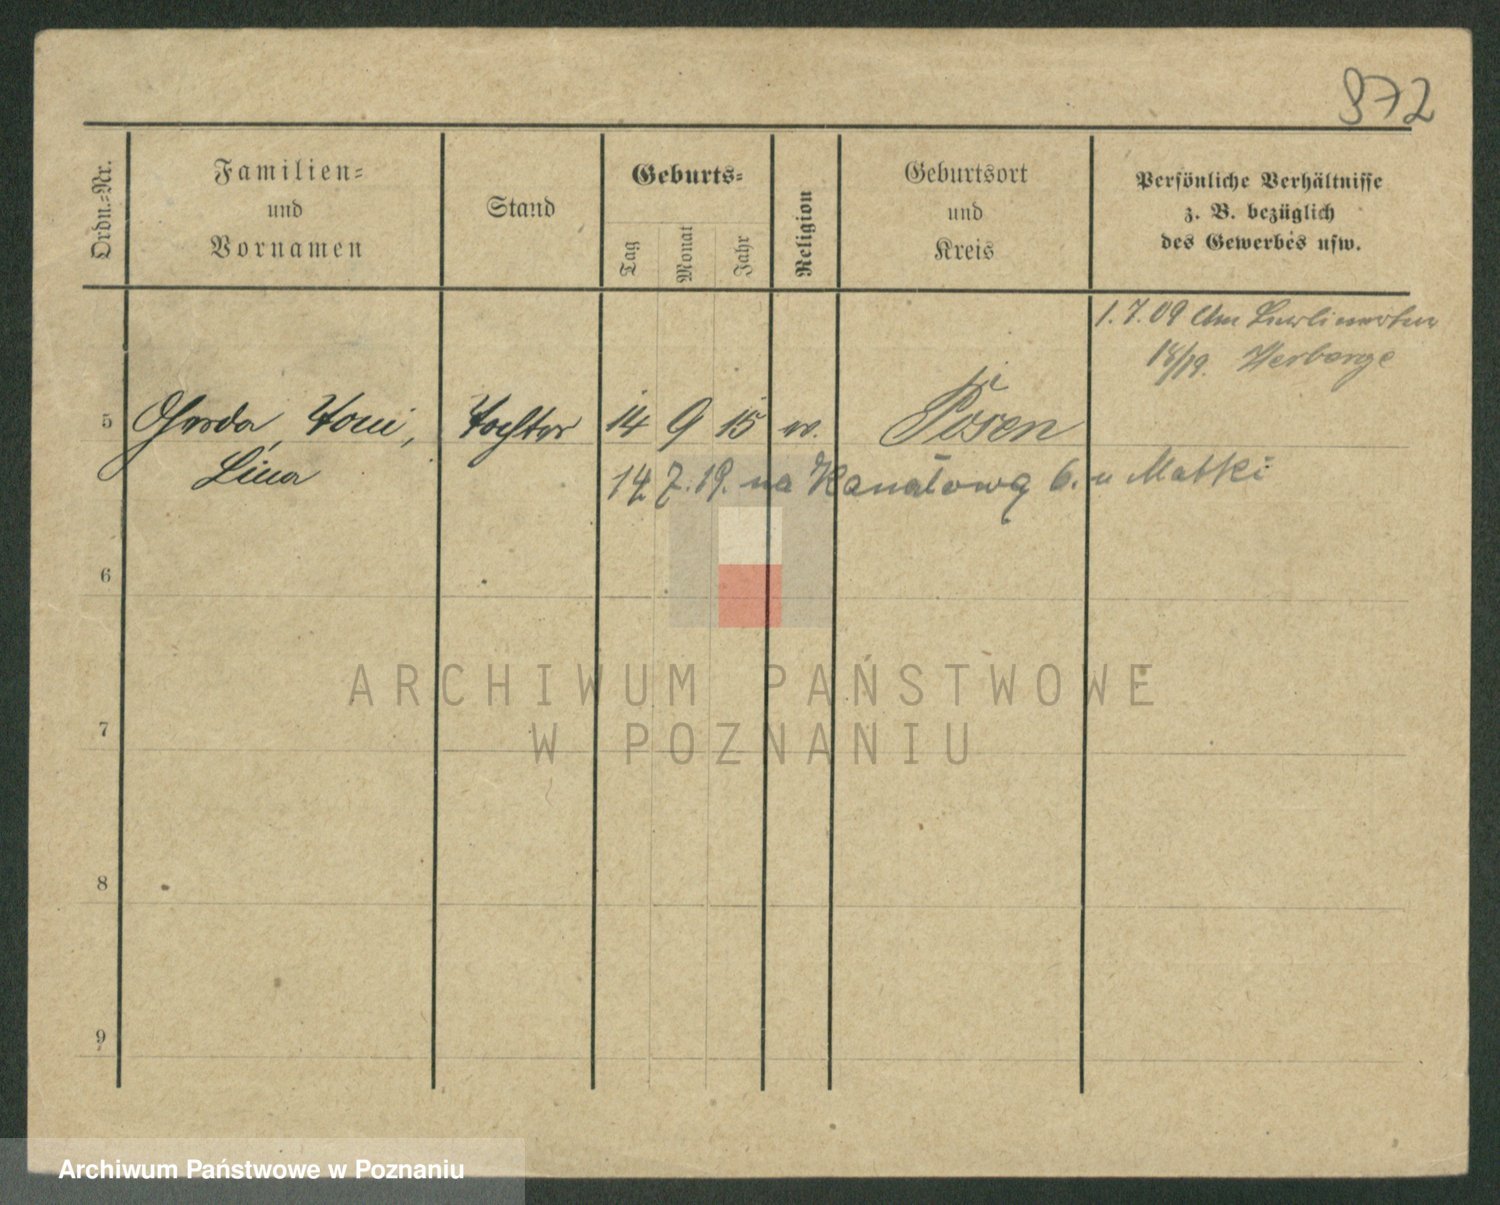 972
Ordn.-Nr.
Familien-
und
Vornamen
Stand
Geburts-
Tag
Monat
Jahr
Religion
Geburtsort
und
Kreis
Persönliche Verhältnisse
z. B. bezüglich
des Gewerbes usw.
1.7.09
18/19. Herberge
5 Gerda, Toni, Tochter 14 9 15 ev. Posen
Lina
14.7.19. na Kanałową 6. u Matki
6
ARCHIWUM PAŃSTWOWE
W POZNANIU
7
8
9
Archiwum Państwowe w Poznaniu